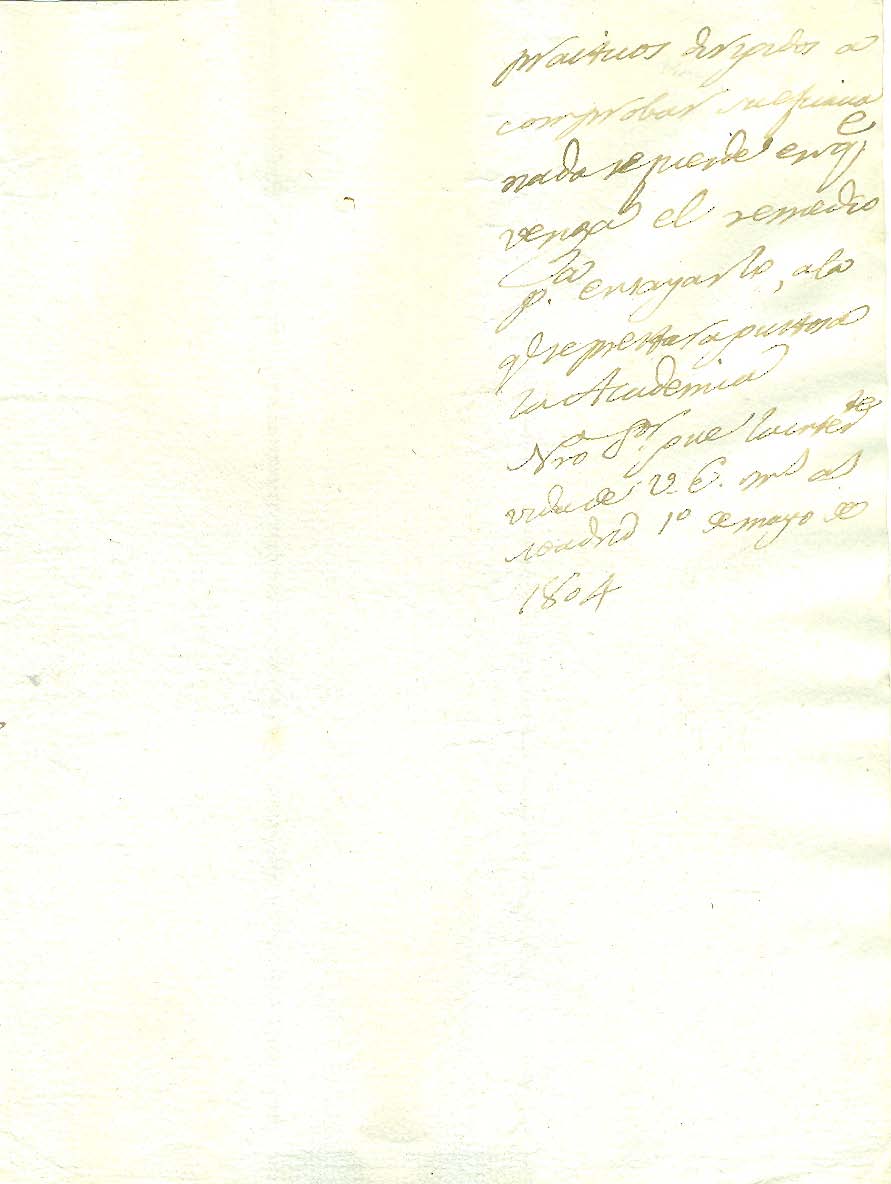 practicos dirigidos a
comprobar su eficacia
nada se pierde en q.e
venga el remedio
p.a ensayarlo, a lo
q.e se prestara gustosa
la Academia
Nro S.or gue
vida de V. E. m.s a.s
Madrid 1º de mayo de
1804